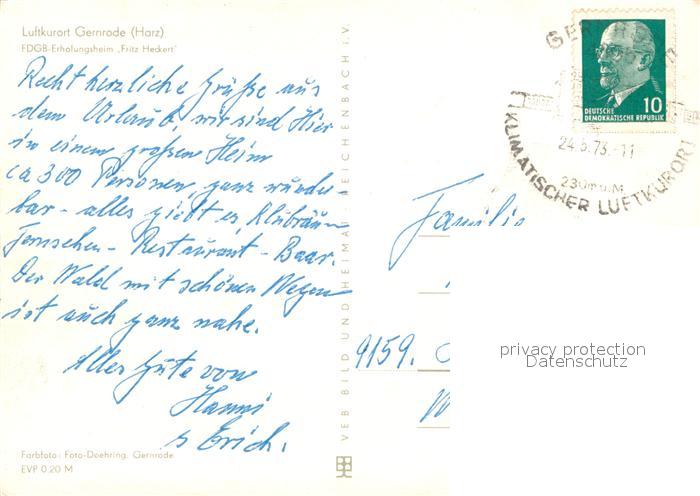 Luftkurort Gernrode (Harz)
FDGB-Erholungsheim „Fritz Heckert"
Recht herzliche Grüße aus
dem Urlaub, wir sind Hier
in einem großen Heim
ca 300 Personen, ganz wunder-
bar - alles giebt es, Klubräum
Fernsehen - Restaurant - Baar.
Der Wald mit schönen Wegen
ist auch ganz nahe.
Alles Gute von
Hanni
Erich.
Farbfoto: Foto-Doehring, Gernrode
EVP 0,20 M
VEB BILD UND HEIMAT REICHENBACH i. V.
DEUTSCHE
DEMOKRATISCHE REPUBLIK
10
24.5.73.-11
230m ü.M.
KLIMATISCHER LUFTKURORT
Familie
9159.
privacy protection
Datenschutz